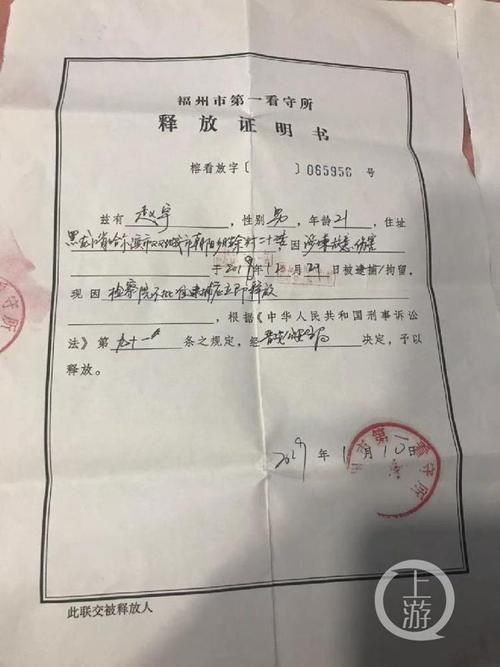 福州市第一看守所
释放证明书
榕看放字〔 〕065956 号
兹有 赵宇 ,性别 男 ,年龄 21 ,住址
黑龙江省哈尔滨市双城市朝阳 村二十 因 涉嫌故意伤害
于 2018年12月29日被逮捕/拘留,
现因 检察院不批准逮捕 立即释放
,根据《中华人民共和国刑事诉讼
法》第 九十一 条之规定,经 晋安公安分局 决定,予以
释放。
2019 年 1 月 10 日
市第一看守所
守所
此联交被释放人
上游